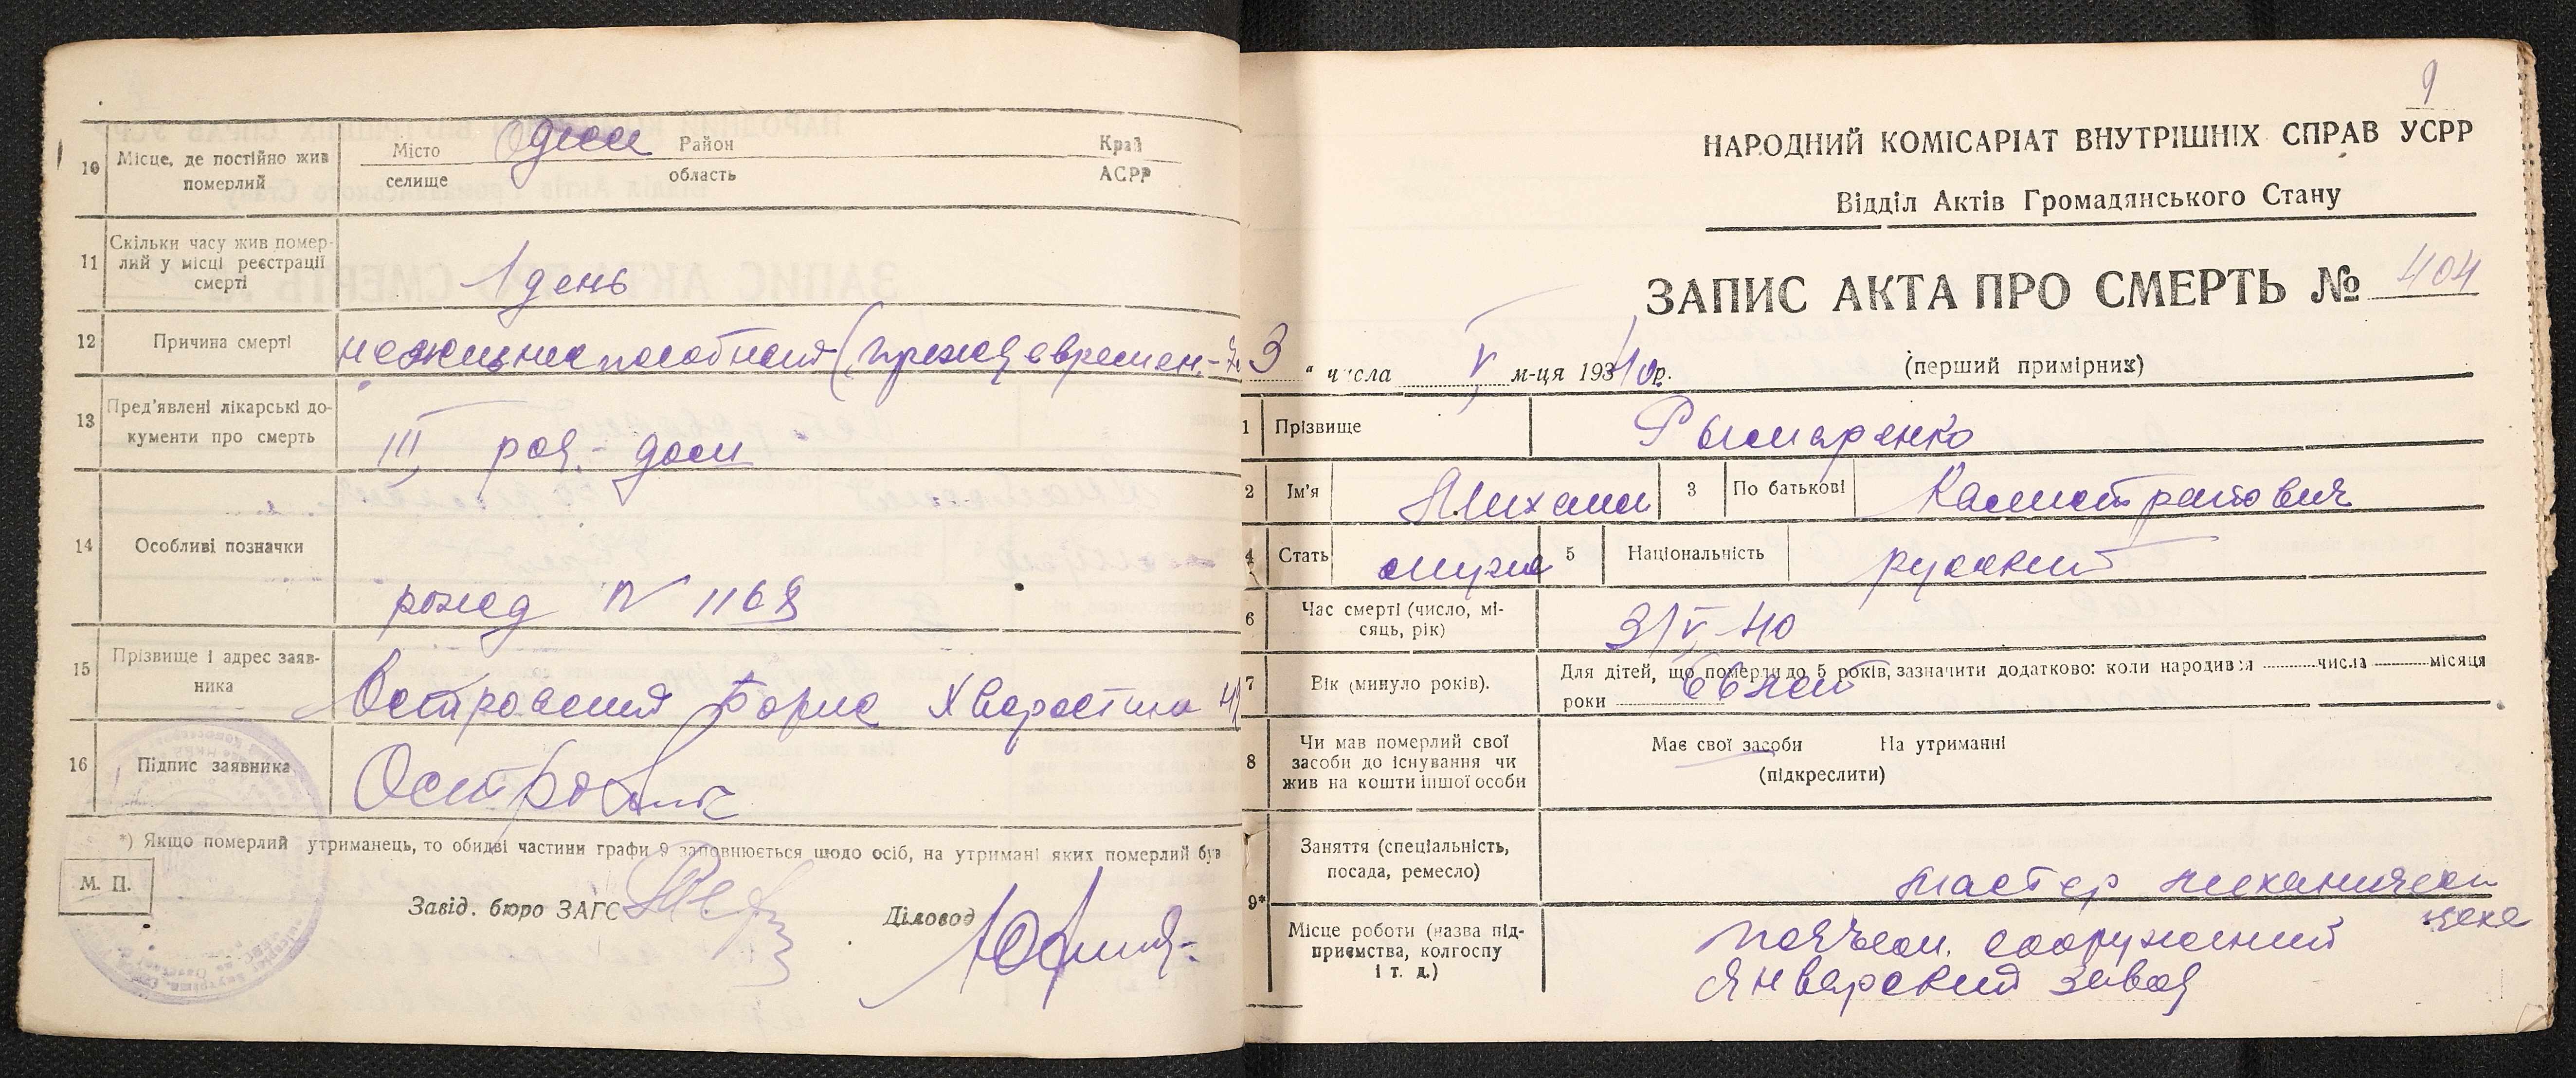 10
Місце, де постійно жив
померлий
Місто
селище
Одесса
Район
область
Край
АСРР
11
Скільки часу жив помер-
лий у місці реєстрації
смерті
1 день
12
Причина смерті
нежизнеспособная (преждевремен.-
13
Пред'явлені лікарські до-
кументи про смерть
III род.- дом
14
Особливі позначки
рожд N 1169
15
Прізвище і адрес заяв-
ника
Борис Хворостина
16
Підпис заявника
*) Якщо померлий утриманець, то обидві частини графи 9 заповнюється щодо осіб, на утримані яких померлий був
М. П.
Завід. бюро ЗАГС
Діловод
9
НАРОДНИЙ КОМІСАРІАТ ВНУТРІШНІХ СПРАВ УСРР
Відділ Актів Громадянського Стану
ЗАПИС АКТА ПРО СМЕРТЬ № 404
3 " числа V м-ця 1940р.
(перший примірник)
1 Прізвище Рымаренко
2 Ім'я Михаил 3 По батькові Калистратович
4 Стать мужс 5 Національність русский
6
Час смерті (число, мі-
сяць, рік)
3/V-40
7
Вік (минуло років).
Для дітей, що померли до 5 років, зазначити додатково: коли народився числа місяця
роки
66 лет
8
Чи мав померлий свої
засоби до існування чи
жив на кошти іншої особи
Має свої засоби На утриманні
(підкреслити)
9*
Заняття (спеціальність,
посада, ремесло)
мастер механическ
цеха
Місце роботи (назва під-
приємства, колгоспу
і т. д.)
подъем. сооружений
Январский завод